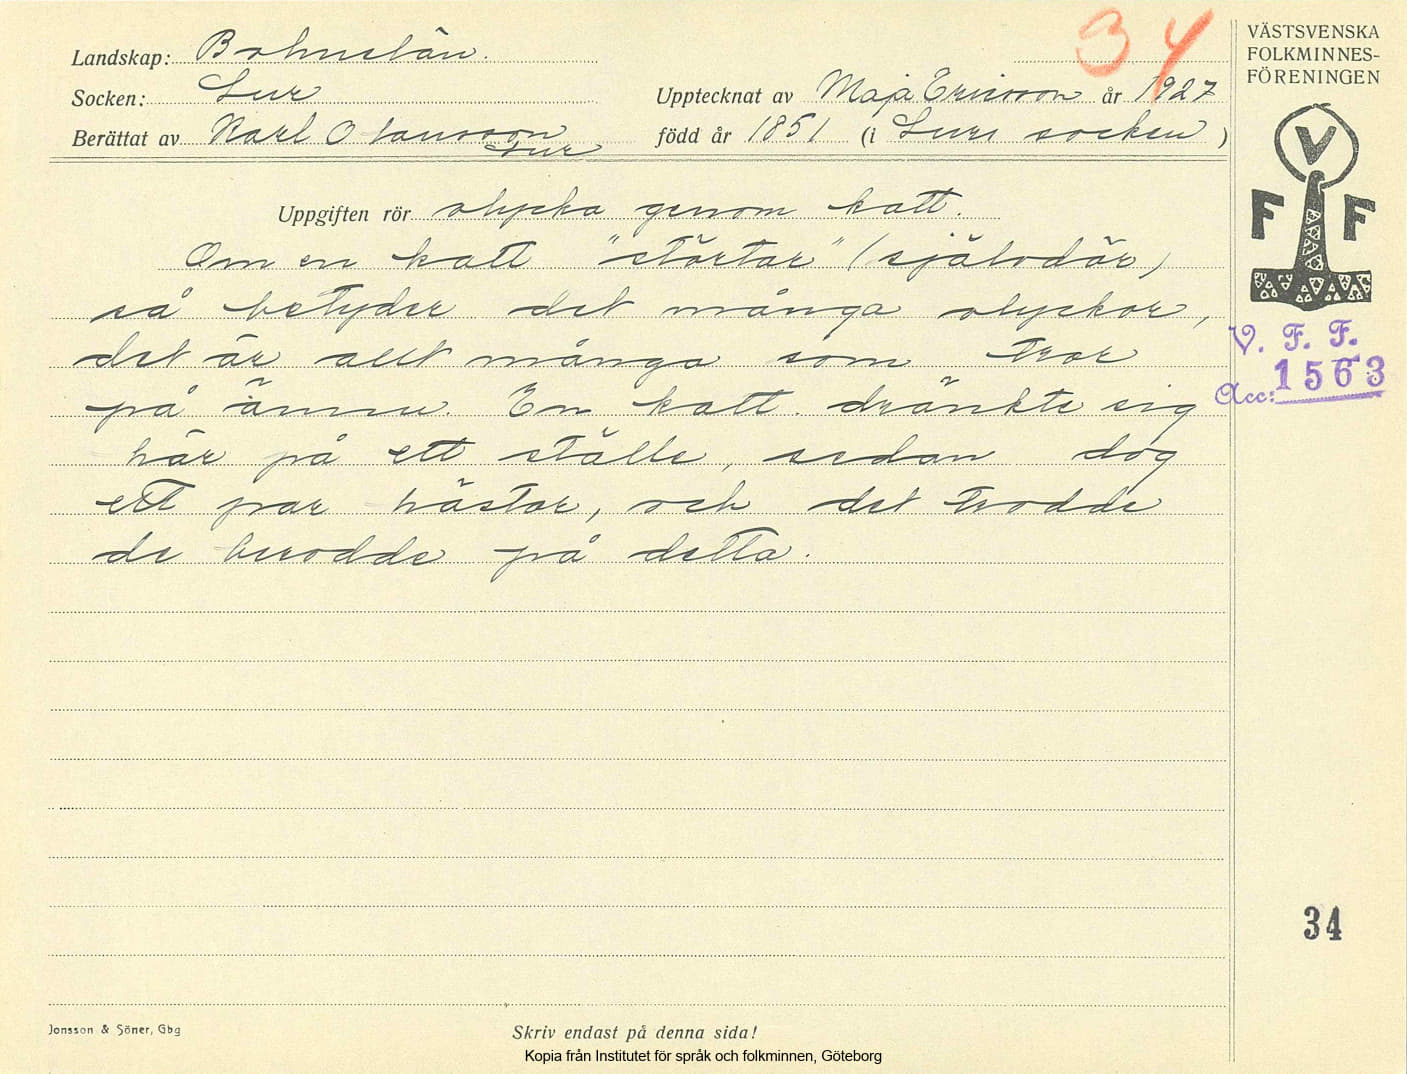 34
VÄSTSVENSKA
FOLKMINNES-
FÖRENINGEN
Landskap: Bohuslän.
Socken: Lur
Upptecknat av Maja Ericsson år 1927
Berättat av Karl Otansson
Lur
född år 1851 (i Lurs socken)
V
F F
Uppgiften rör olycka genom katt.
Om en katt "störtar" (självdör)
så betyder det många olyckor,
det är allt många som tror
på ännu. En katt dränkte sig
här på ett ställe, sedan dog
ett par hästar, och det trodde
de berodde på detta.
V. F. F.
Acc: 1563
34
Jonsson & Söner, Gbg
Skriv endast på denna sida!
Kopia från Institutet för språk och folkminnen, Göteborg